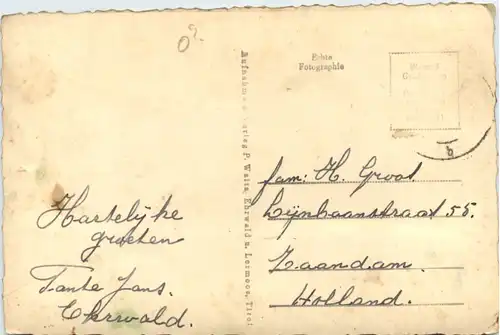 Echte
Fotographie
Aufnahme u. Verlag P. Waitz, Ehrwald u. Lermoos, Tirol
fam: H. Groot
Lijnbaanstraat 55.
Zaandam.
Holland.
Hartelijke
groeten
Tante Jans.
Ehrwald.